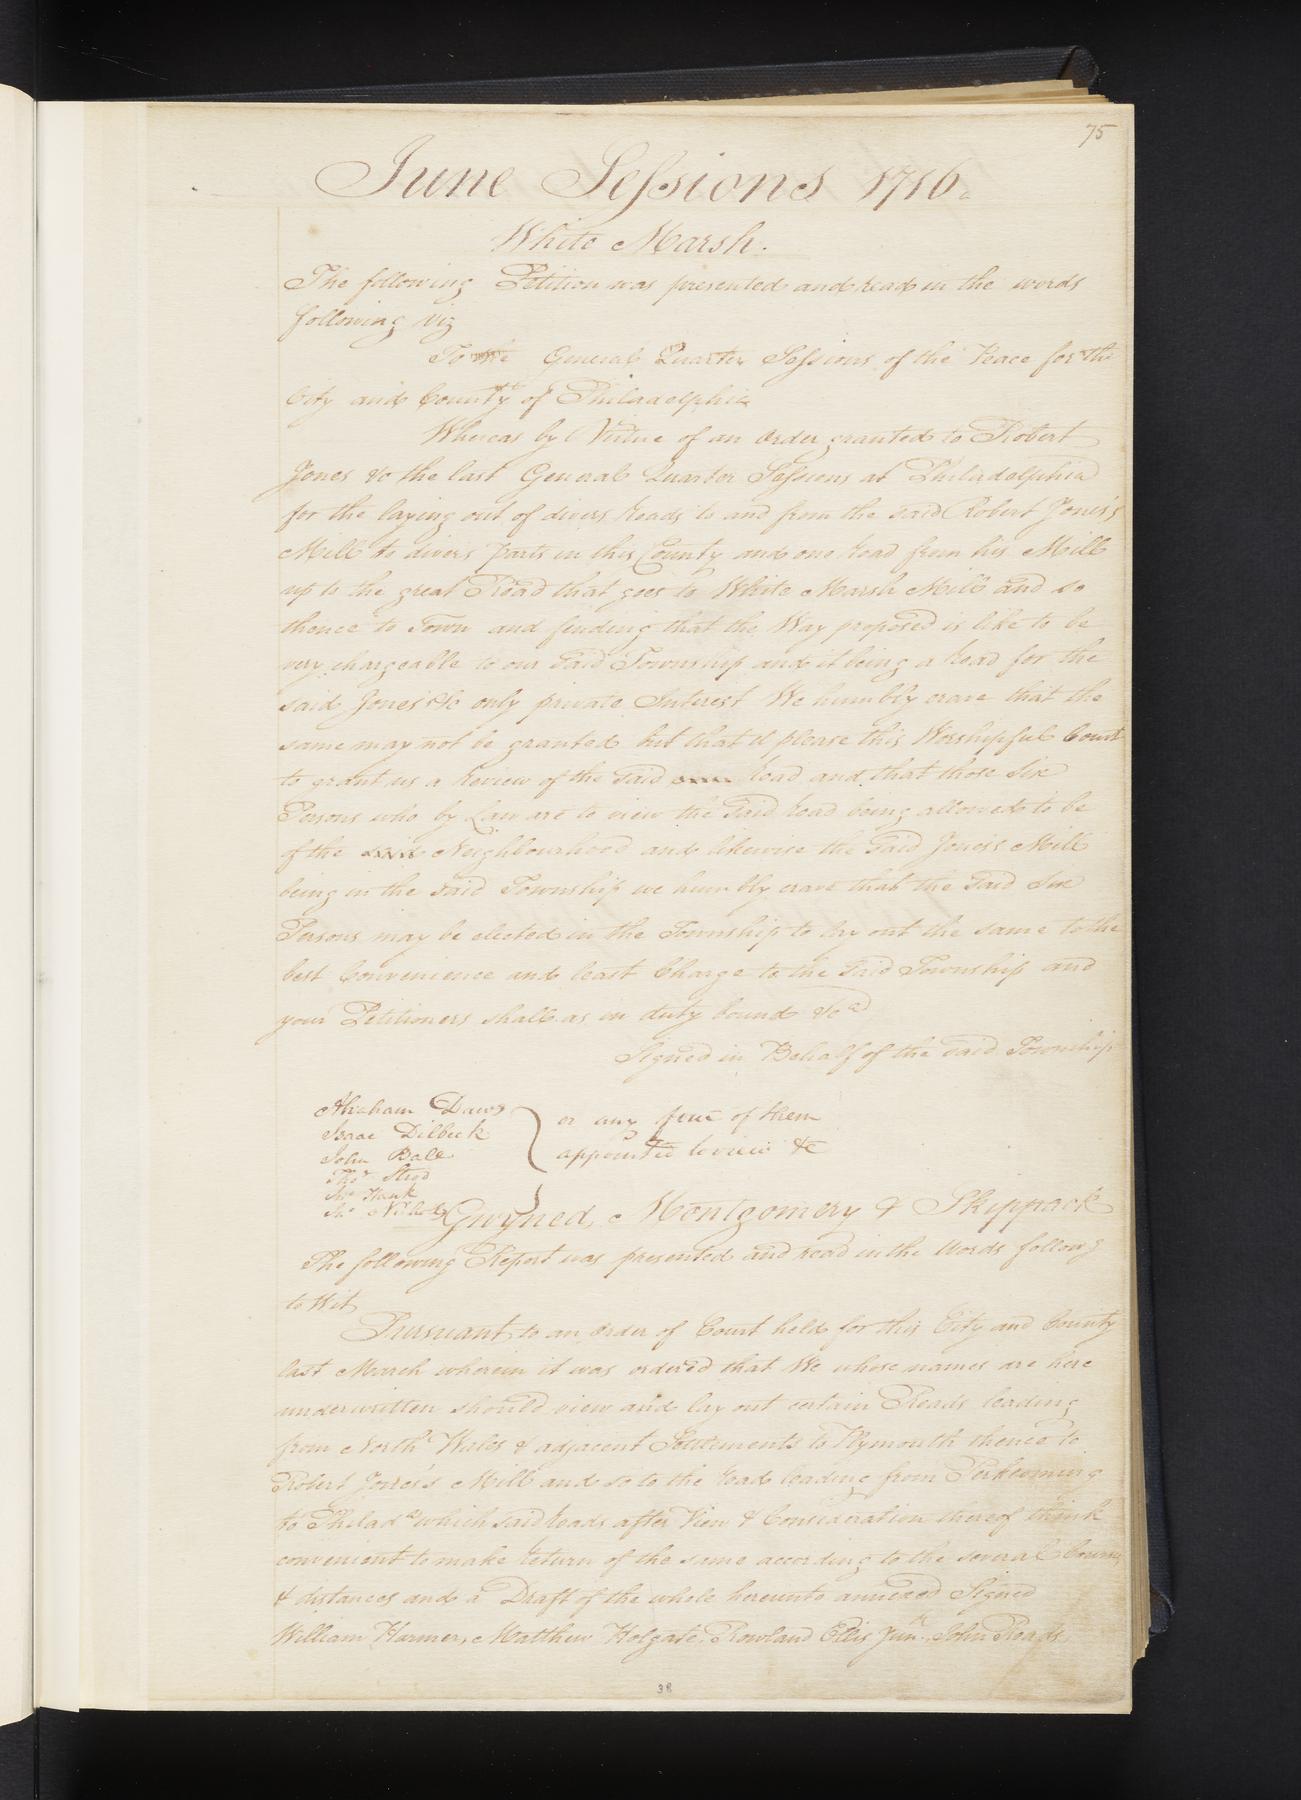 75
June Sessions 1716.
White Marsh.
The following Petition was presented and read in the words
following viz
To the General Quarter Sessions of the Peace for the
City and County of Philadelphia
Whereas by Virtue of an Order granted to Robert
Jones &c the last General Quarter Sessions at Philadelphia
for the laying out of divers Roads to and from the said Robert Jones's
Mill to divers parts in this County and one Road from his Mill
up to the great Road that goes to White Marsh Mill and so
thence to Town and finding that the Way proposed is like to be
very chargeable to our said Township and it being a Road for the
said Jones &c only private Interest We humbly crave that the
same may not be granted but that it please this Worshipful Court
to grant us a Review of the said Road and that those Six
Persons who by Law are to view the said Road being allowed to be
of the said Neighbourhood and likewise the said Jones's Mill
being in the said Township we humbly crave that the said Six
Persons may be elected in the Township to lay out the same to the
best Convenience and least Charge to the said Township and
your Petitioners shall as in duty bound &ca
Signed in Behalf of the said Township
Abraham Daws
Isaac Dilbeck
John Ball
Thos Strod
Jno Hank
Jno Nichols
or any four of them
appointed to view &c
Gwyned, Montgomery & Skippack
The following Report was presented and read in the Words followg
to Wit
Pursuant to an Order of Court held for this City and County
last March wherein it was ordered that We whose names are here
underwritten should view and lay out certain Roads leading
from North Wales & adjacent Settlements to Plymouth thence to
Robert Jones's Mill and so to the Road leading from Perkeoming
to Philada which said Roads after View & Consideration thereof think
convenient to make return of the same according to the several Courses
& distances and a Draft of the whole hereunto annexed Signed
William Harmer, Matthew Holgate, Rowland Ellis Junr, John Roads
38